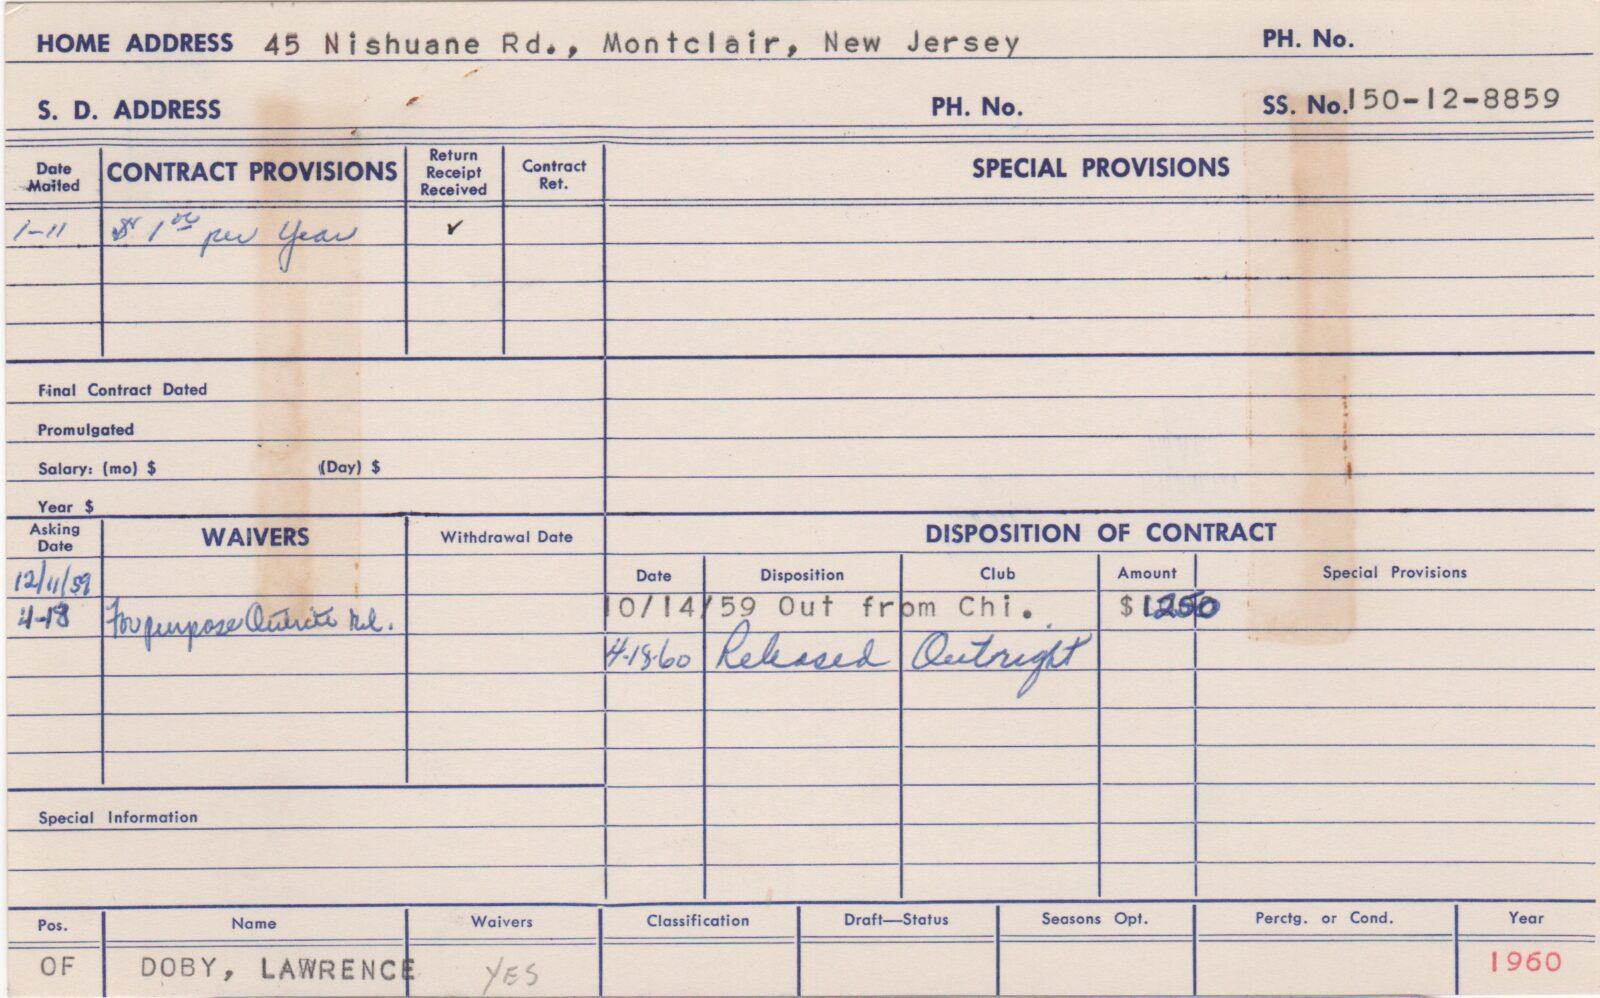 HOME ADDRESS 45 Nishuane Rd., Montclair, New Jersey PH. No.
S. D. ADDRESS PH. No. SS. No. 150-12-8859
Date Mailed CONTRACT PROVISIONS Return Receipt Received Contract Ret. SPECIAL PROVISIONS
1-11 $1 00 per year ✓
Final Contract Dated
Promulgated
Salary: (mo) $ (Day) $
Year $
Asking Date WAIVERS Withdrawal Date DISPOSITION OF CONTRACT
Date Disposition Club Amount Special Provisions
12/11/59
10/14/59 Out from Chi. $
4-18 For purpose Outrite Rel.
4-18-60 Released Outright
Special Information
Pos. Name Waivers Classification Draft—Status Seasons Opt. Perctg. or Cond. Year
OF DOBY, LAWRENCE YES 1960